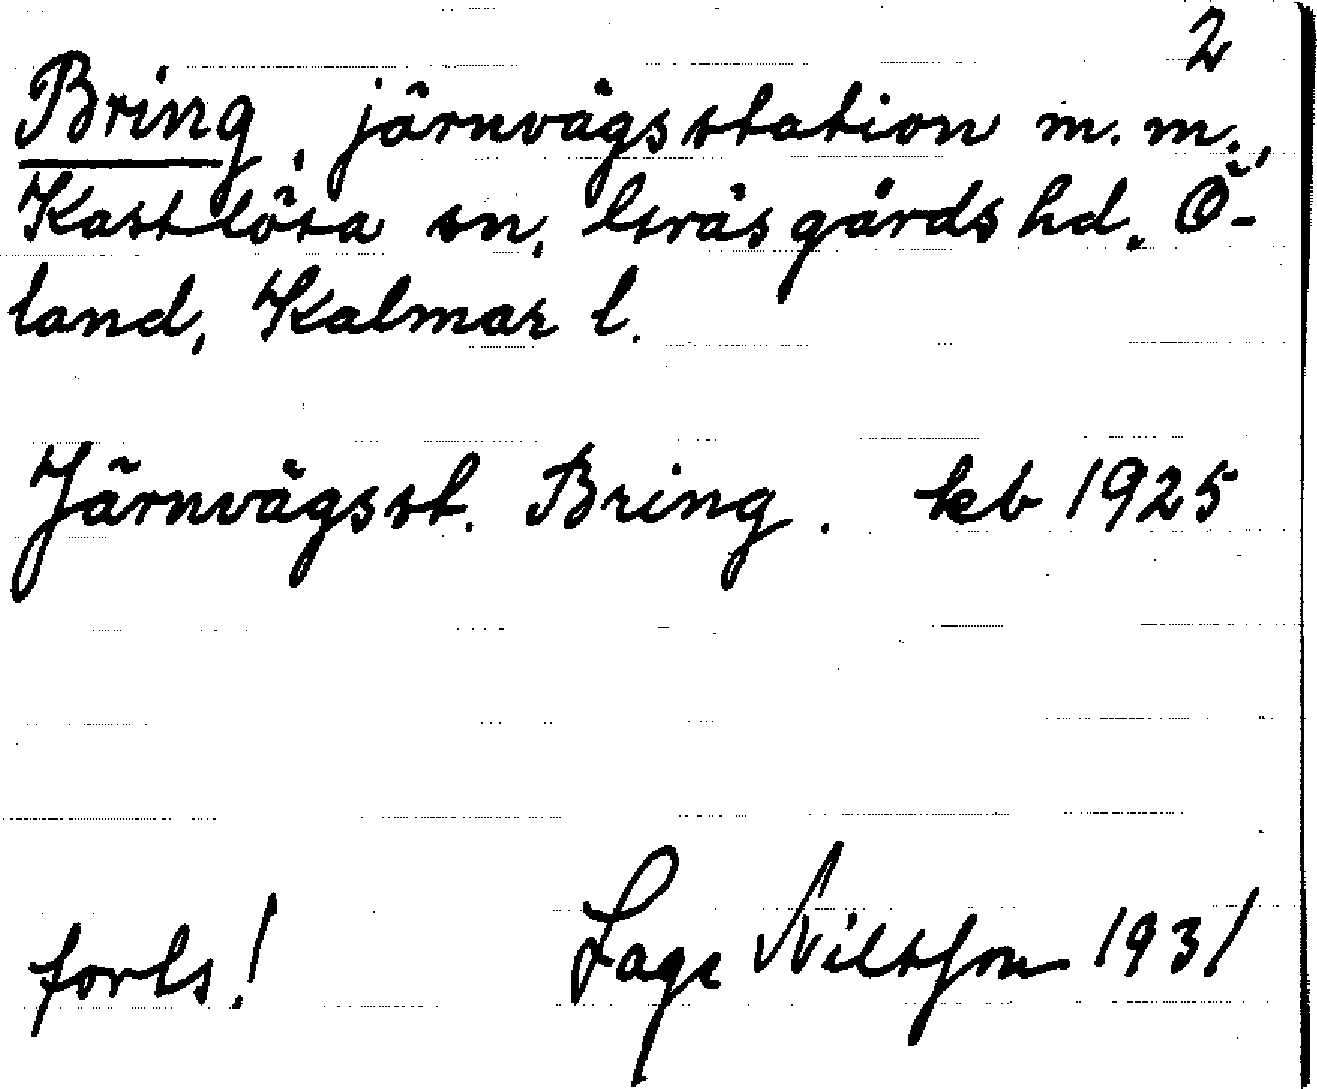 2
Bring, järnvägsstation m.m.,
Kastlösa sn, Gräsgårds hd. Ö-
land, Kalmar l.
Järnvägsst. Bring. kb 1925
forts! Lage Nilsson 1931